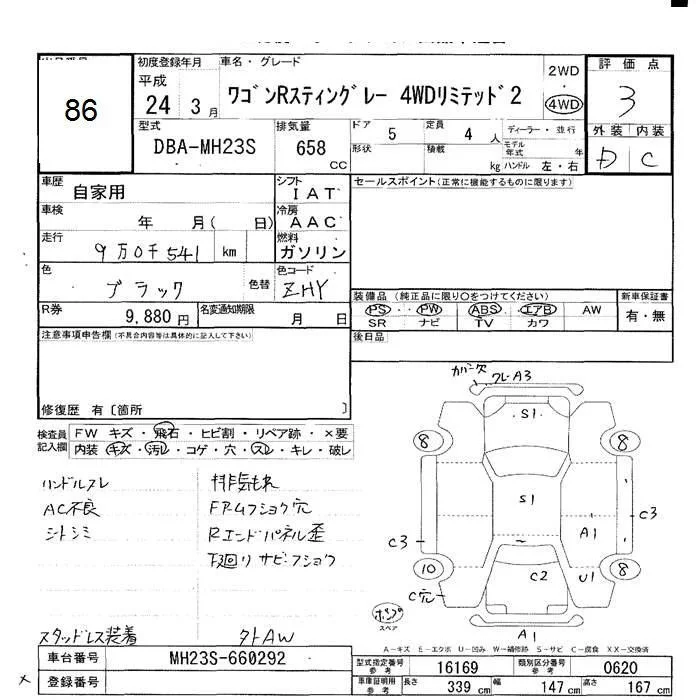 86
初度登録年月
平成
24 3月
車名・グレード
ワゴンRスティングレー 4WDリミテッド2
2WD
4WD
評価点
3
外装 内装
D C
型式
DBA-MH23S
排気量
658
CC
ドア
5
定員
4 人
形状
積載
kg
ディーラー・並行
モデル年式
年
ハンドル 左・右
車歴
自家用
シフト
I A T
車検
年 月( 日)
冷房
A A C
走行
9万0千541 km
燃料
ガソリン
色
ブラック
色替
色コード
ZHY
R券
9,880 円
名変通知期限
月 日
セールスポイント(正常に機能するものに限ります)
装備品(純正品に限り○をつけてください)
PS・PW ABS エアB AW
SR ナビ TV カワ
新車保証書
有・無
後日品
注意事項申告欄(不具合内容等は具体的に記入して下さい)
修復歴 有〔箇所 〕
検査員
記入欄
FW キズ・飛石・ヒビ割・リペア跡・×要
内装 キズ・汚レ・コゲ・穴・スレ・キレ・破レ
ハンドルスレ
AC不良
シトシミ
排気もれ
FRムフショク穴
Rエンドパネル歪
下廻リサビ・フショク
スタッドレス装着
夕トAW
カバー欠
クレ・A3
S1
8
8
S1
C3
C3
A1
10
8
C2
U1
C穴
ポンプ
スペア
A1
A-キズ E-エクボ U-凹み W-補修跡 S-サビ C-腐食 XX-交換済
車台番号
MH23S-660292
登録番号
型式指定番号
参考
16169
類別区分番号
参考
0620
車庫証明用
参考
長さ 339 cm
幅 147 cm
高さ 167 cm